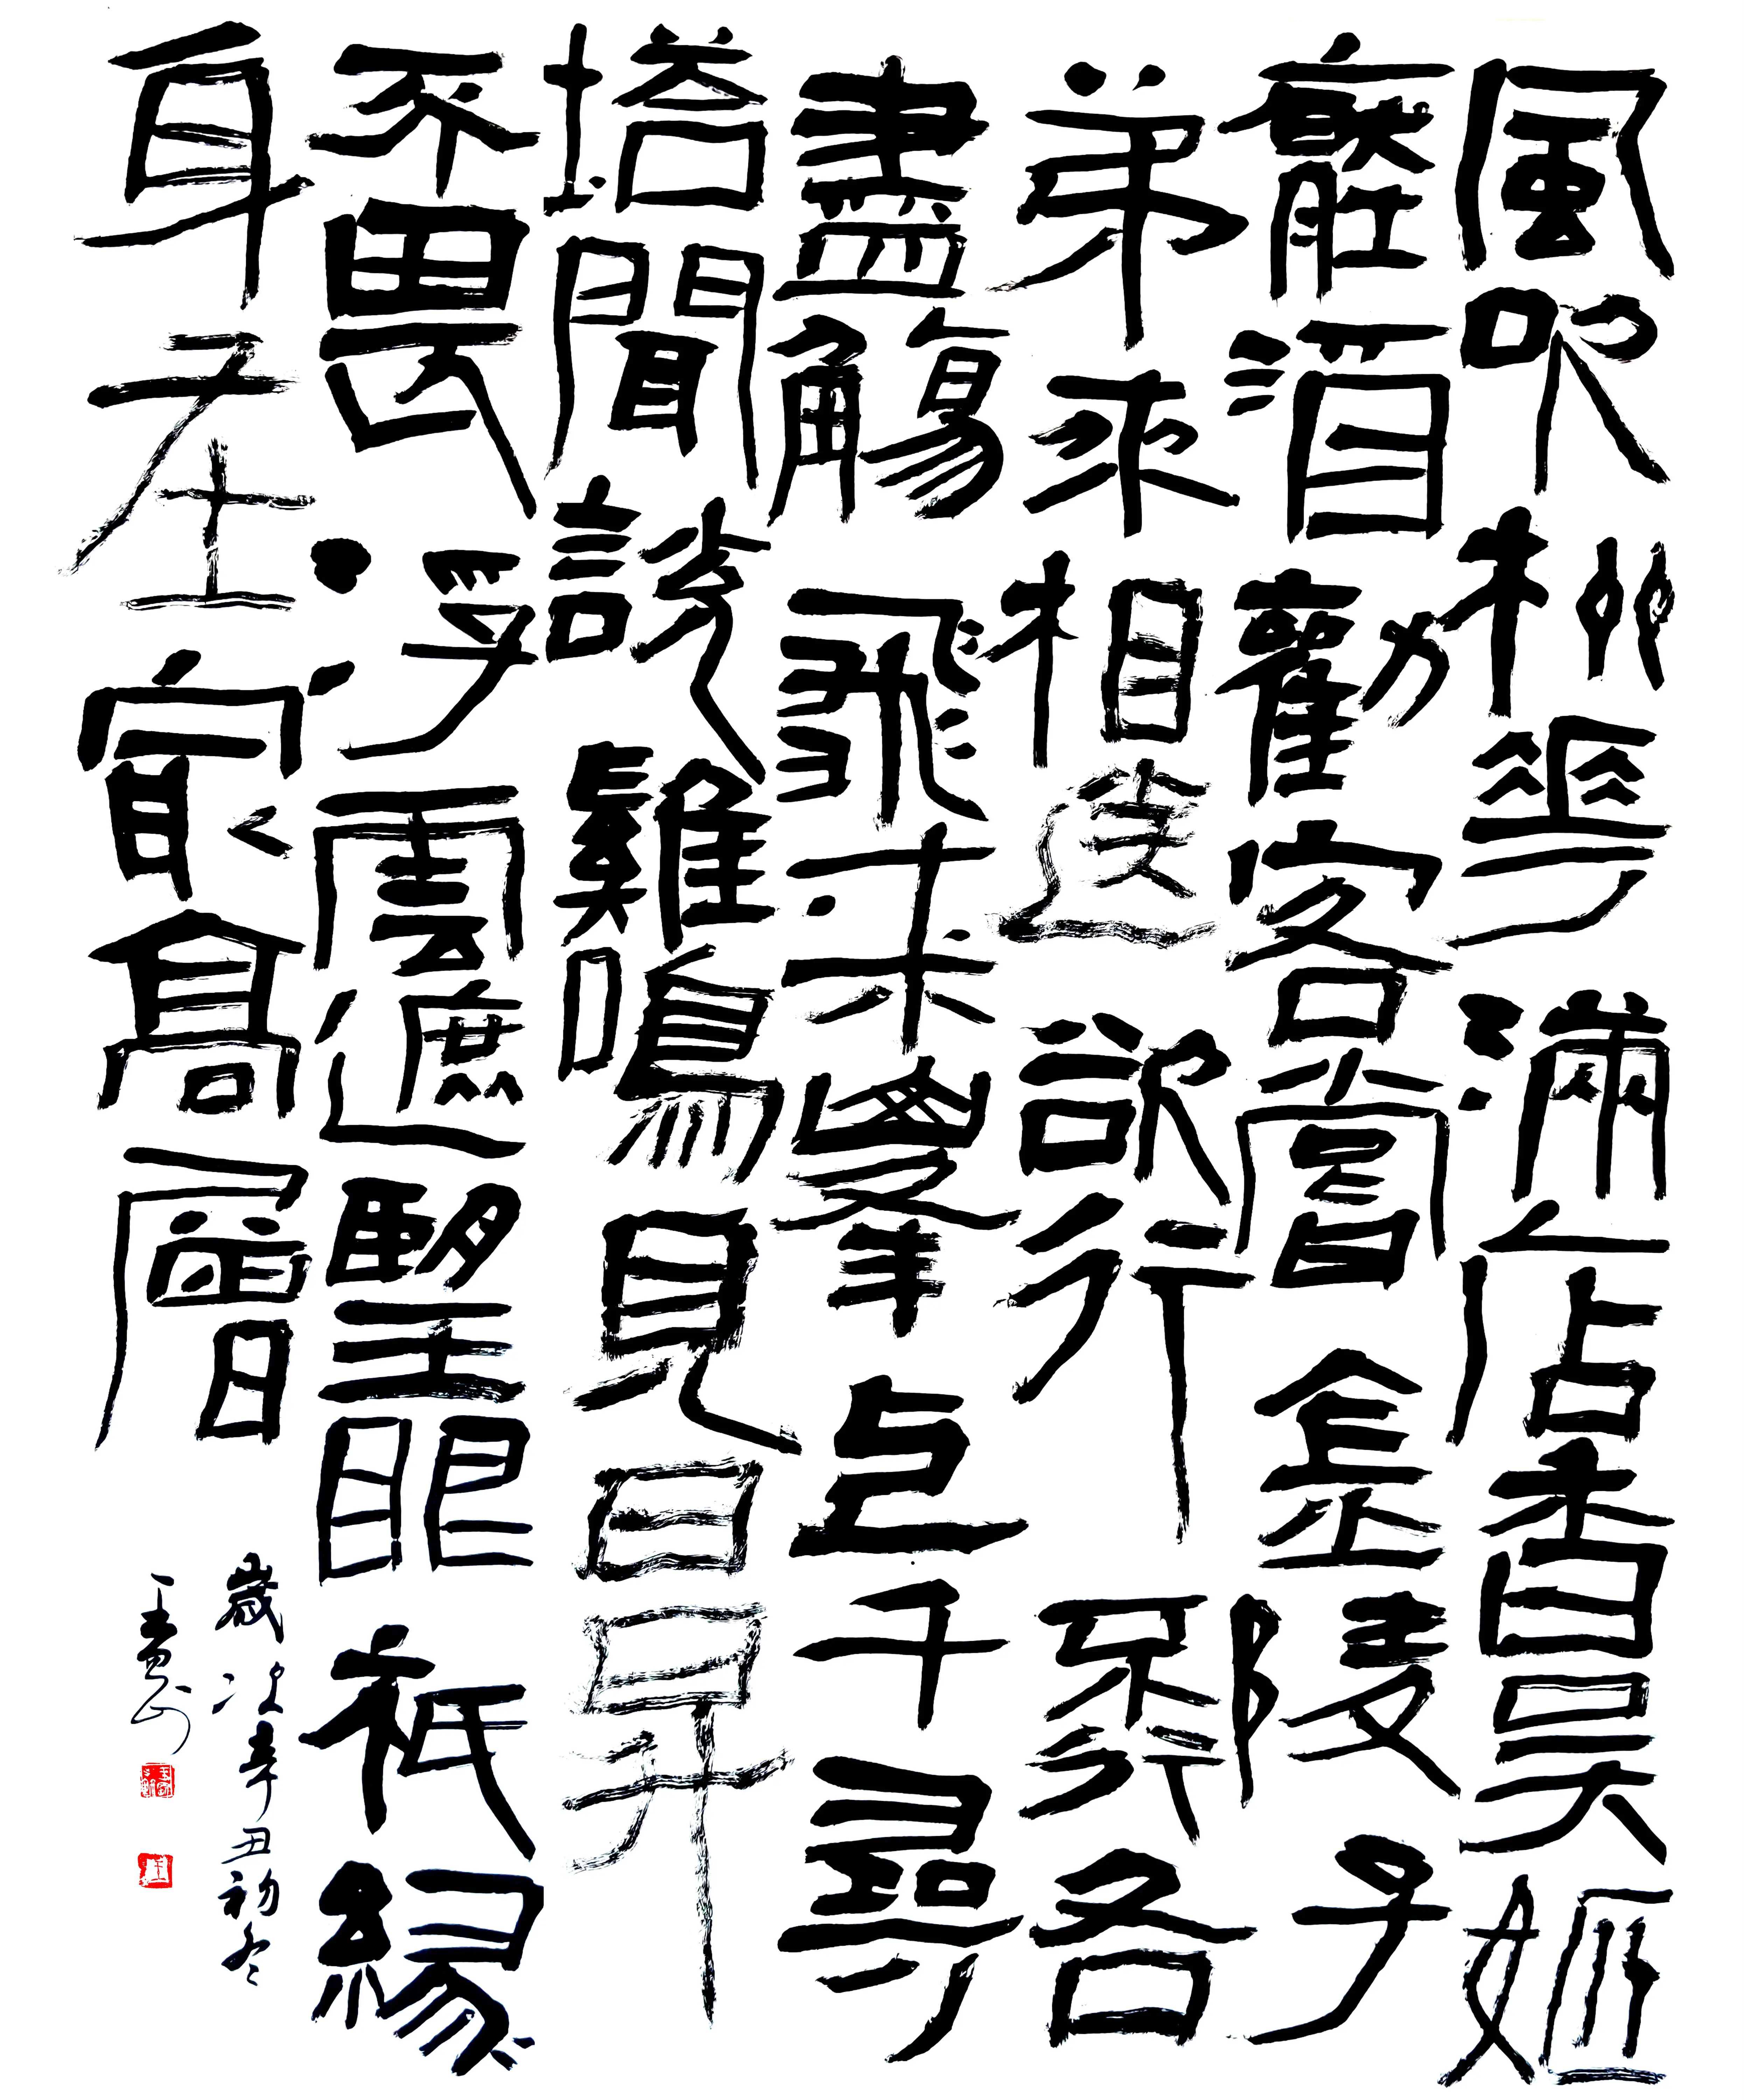 風吹柳花滿店香吳姬
壓酒勸客嘗金陵子
弟來相送欲行不行各
盡觴飛來峯上千尋
塔聞說雞鳴見日昇
不畏浮雲遮望眼祇緣
身在最高層
歲次辛丑初冬